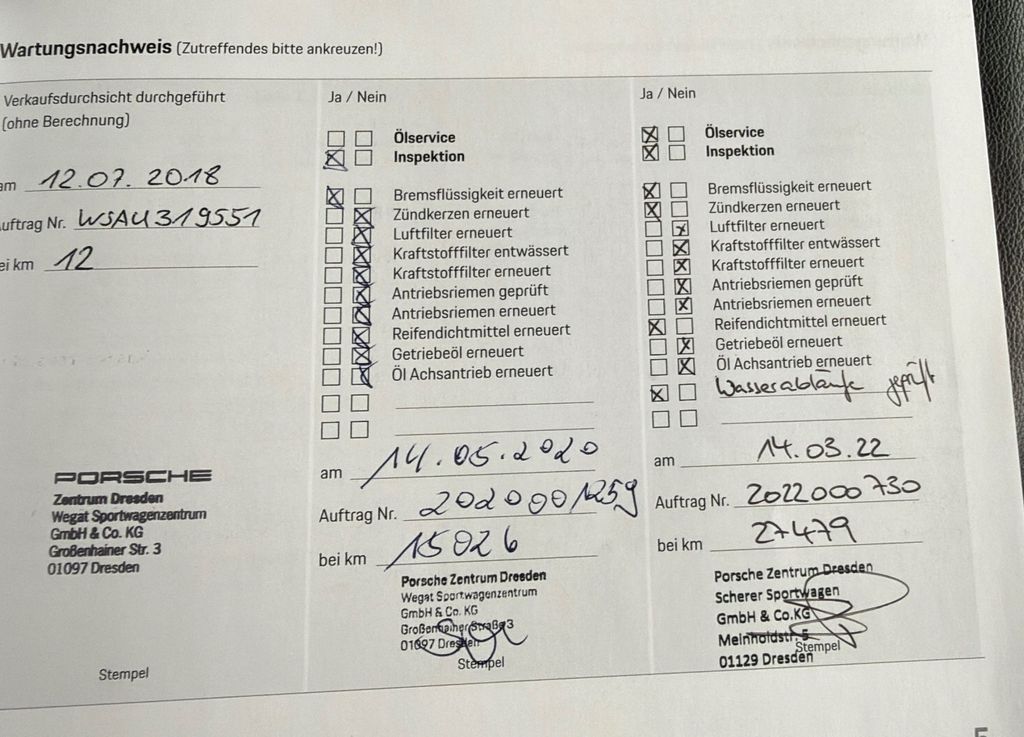 Wartungsnachweis (Zutreffendes bitte ankreuzen!)
Verkaufsdurchsicht durchgeführt
(ohne Berechnung)
am 12.07.2018
uftrag Nr. WSAU319551
ei km 12
PORSCHE
Zentrum Dresden
Wegat Sportwagenzentrum
GmbH & Co. KG
Großenhainer Str. 3
01097 Dresden
Stempel
Ja / Nein
Ölservice
Inspektion
Bremsflüssigkeit erneuert
Zündkerzen erneuert
Luftfilter erneuert
Kraftstofffilter entwässert
Kraftstofffilter erneuert
Antriebsriemen geprüft
Antriebsriemen erneuert
Reifendichtmittel erneuert
Getriebeöl erneuert
Öl Achsantrieb erneuert
am 14.05.2020
Auftrag Nr. 2020001259
bei km 15026
Porsche Zentrum Dresden
Wegat Sportwagenzentrum
GmbH & Co. KG
Großenhainer Straße 3
01097 Dresden
Stempel
Ja / Nein
Ölservice
Inspektion
Bremsflüssigkeit erneuert
Zündkerzen erneuert
Luftfilter erneuert
Kraftstofffilter entwässert
Kraftstofffilter erneuert
Antriebsriemen geprüft
Antriebsriemen erneuert
Reifendichtmittel erneuert
Getriebeöl erneuert
Öl Achsantrieb erneuert
Wasserabläufe geprüft
am 14.03.22
Auftrag Nr. 2022000730
bei km 27479
Porsche Zentrum Dresden
Scherer Sportwagen
GmbH & Co.KG
Meinholdstr. 5
Stempel
01129 Dresden